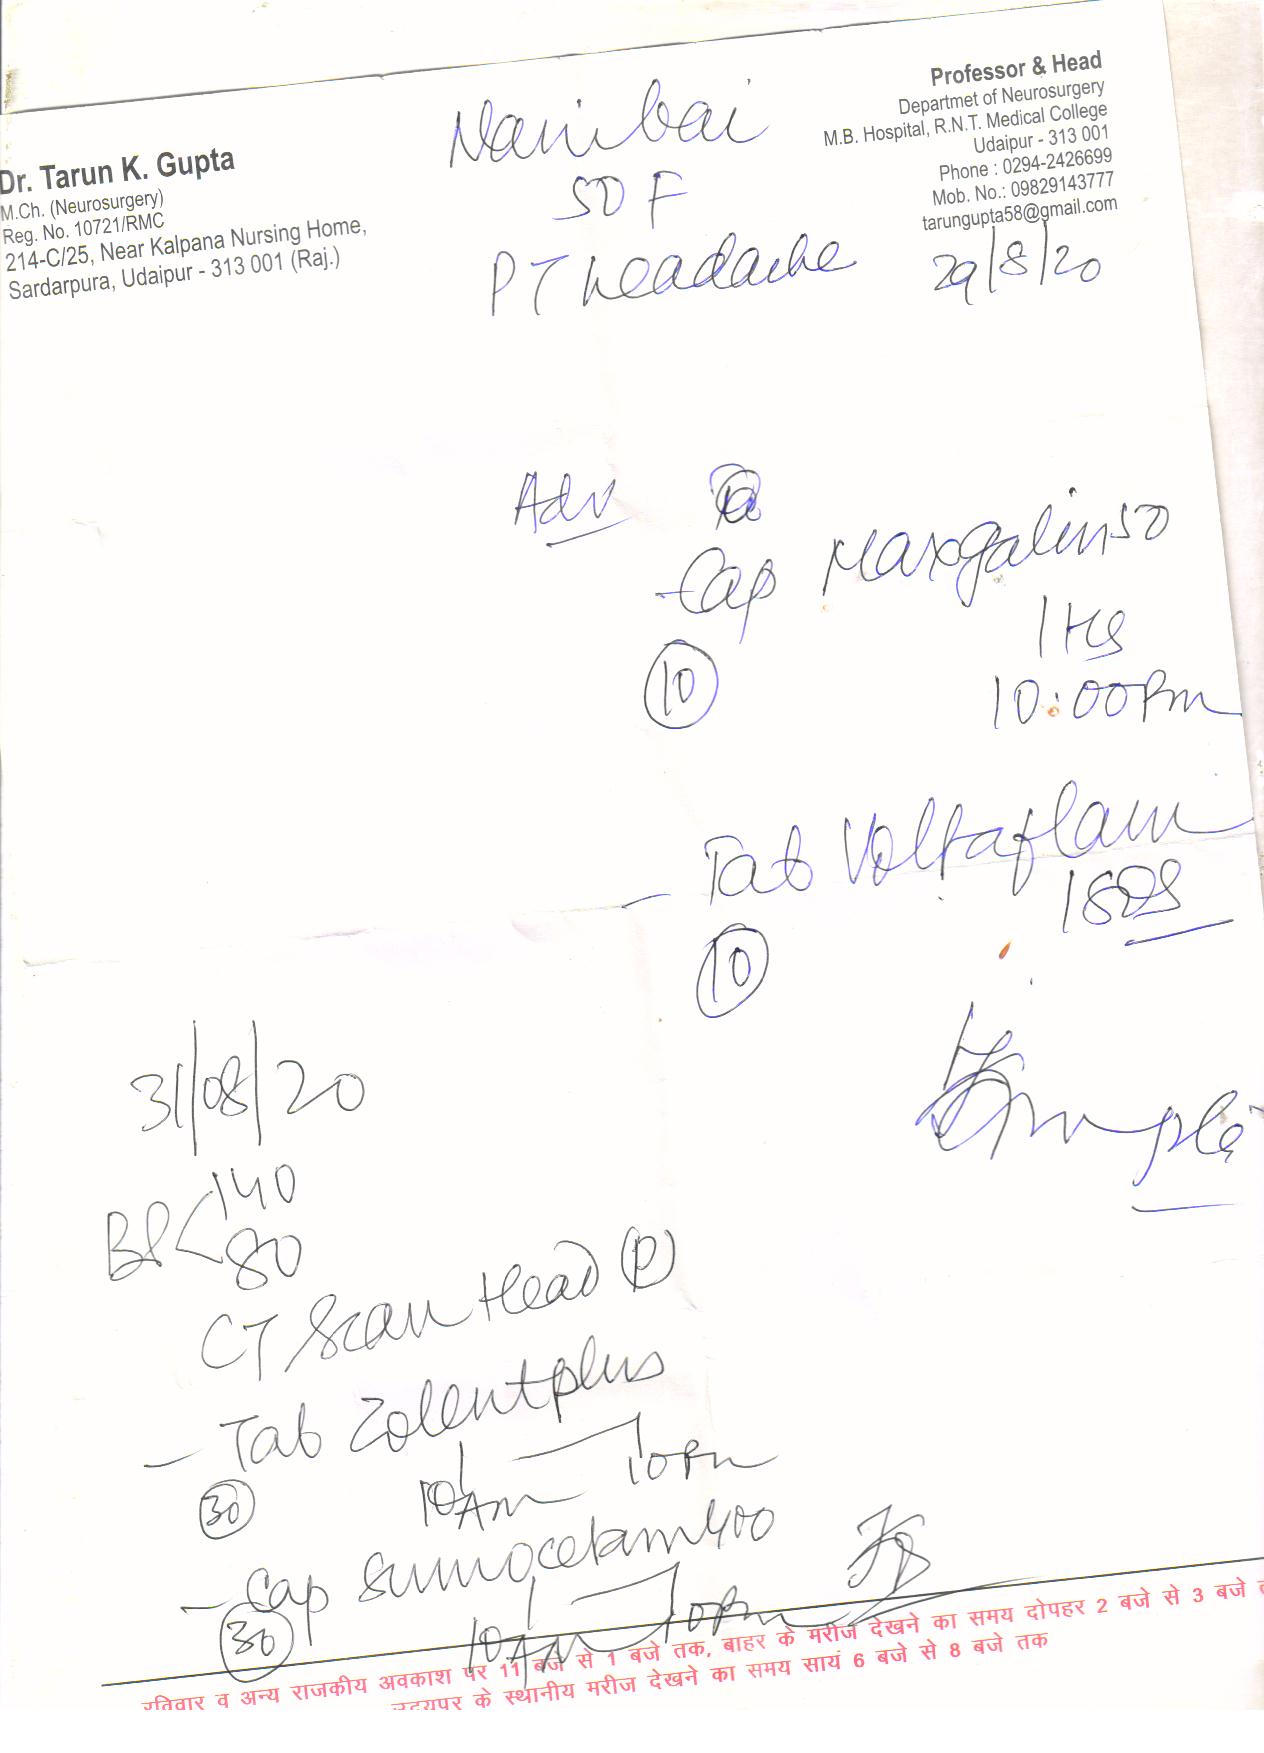 Dr. Tarun K. Gupta
M.Ch. (Neurosurgery)
Reg. No. 10721/RMC
214-C/25, Near Kalpana Nursing Home,
Sardarpura, Udaipur - 313 001 (Raj.)
Professor & Head
Departmet of Neurosurgery
M.B. Hospital, R.N.T. Medical College
Udaipur - 313 001
Phone : 0294-2426699
Mob. No.: 09829143777
tarungupta58@gmail.com
29/8/20
50 F
headache
Adv
- Cap Maxgalin 50
1 HS
10
10:00 Pm
- Tab Voltaflam
1 SOS
10
31/08/20
BP 140
80
CT Scan Head (P)
- Tab Zolentplus
30
10 Am 10 Pm
- Cap Sumocetam 400
30
10 Am 10 Pm
रविवार व अन्य राजकीय अवकाश पर 11 बजे से 1 बजे तक, बाहर के मरीज देखने का समय दोपहर 2 बजे से 3 बजे
के स्थानीय मरीज देखने का समय सायं 6 बजे से 8 बजे तक